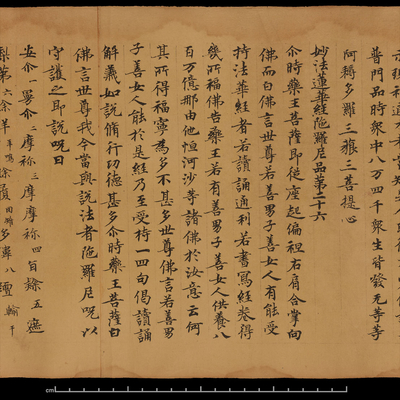 普門品時眾中八万四千眾生皆發无等等
阿耨多羅三藐三菩提心
妙法蓮華經陁羅尼品第二十六
尒時藥王菩薩即從座起偏袒右肩合掌向
佛而白佛言世尊若善男子善女人有能受
持法華經者若讀誦通利若書寫經卷得
幾所福佛告藥王若有善男子善女人供養八
百万億那由他恒河沙等諸佛於汝意云何
其所得福寧為多不甚多世尊佛言若善男
子善女人能於是經乃至受持一四句偈讀誦
解義如說脩行功德甚多尒時藥王菩薩白
佛言世尊我今當與說法者陁羅尼呪以
守護之即說呪曰
安尒一曼尒二摩祢三摩摩祢四旨隸五遮
梨第六賒羊羊鳴賒履罔雉多瑋八羶輸千
cm